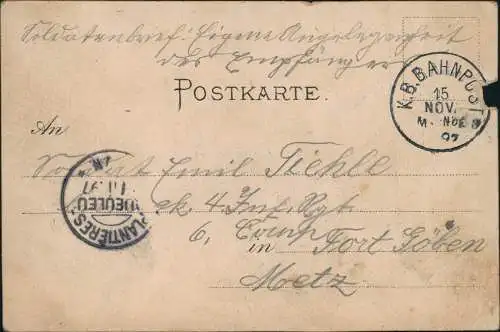 Soldatenbrief. Eigene Angelegenheit
des Empfängers
POSTKARTE.
K.B.BAHNPOST
15
NOV.
97
An
Soldat Emil
4. Inf. Rgt.
6. Comp.
in Fort Göben
Metz
PLANTIERES-
QUEULEU